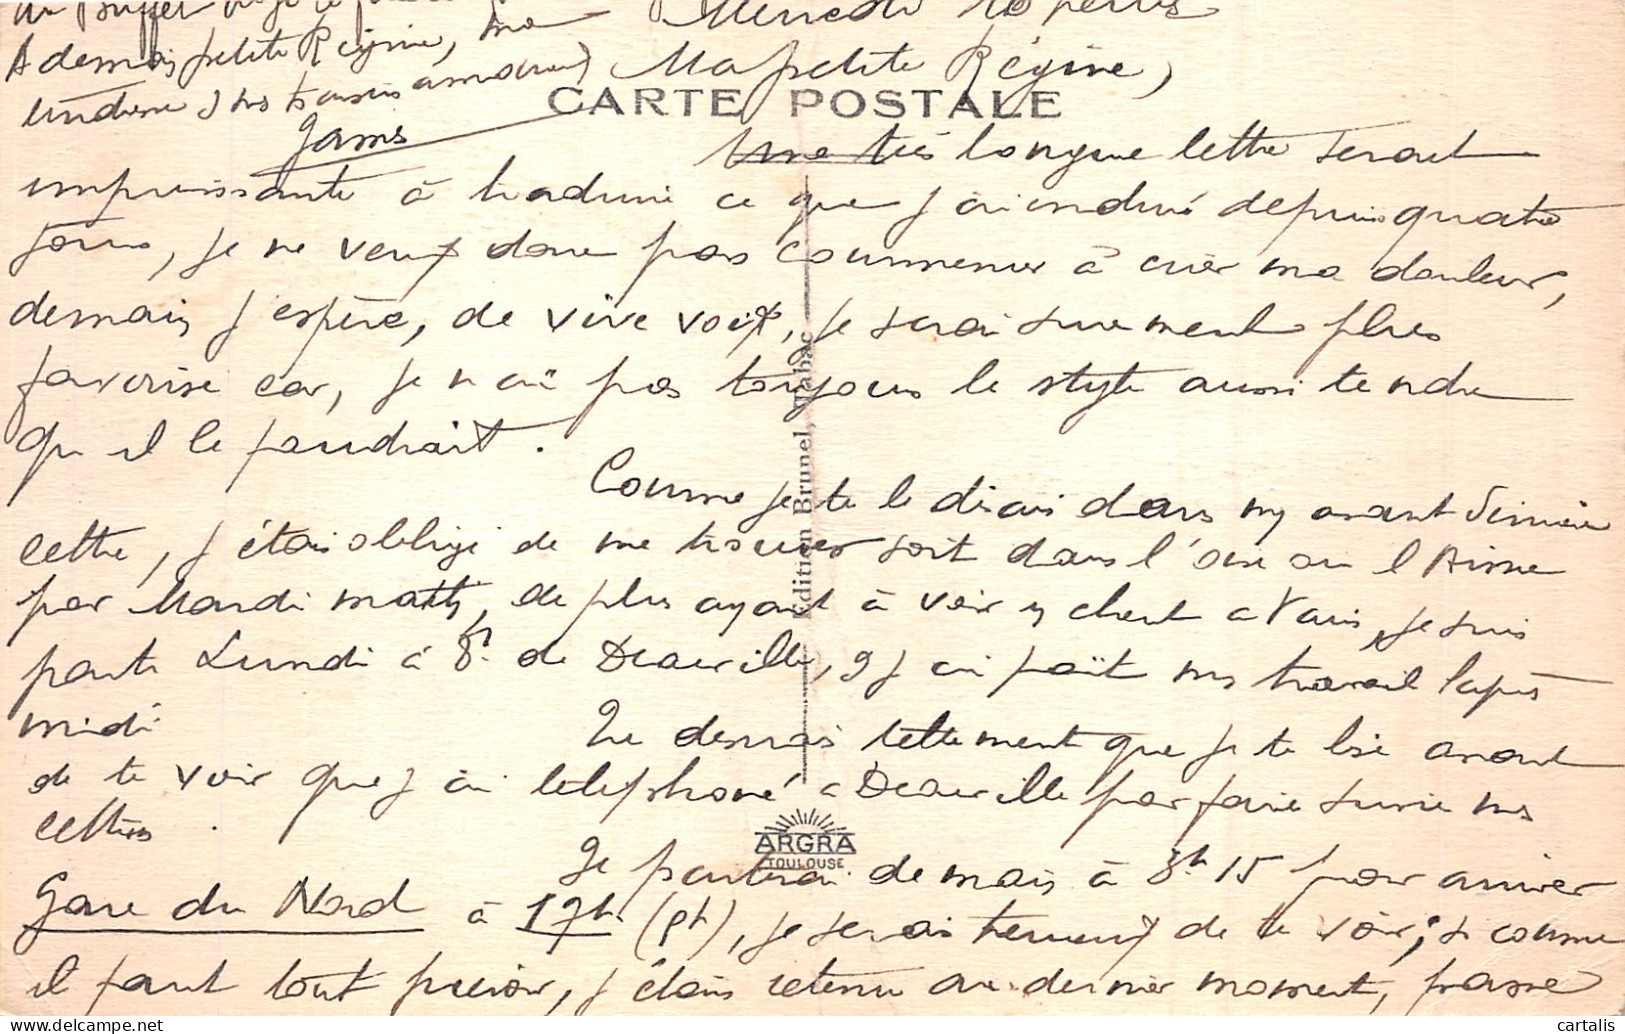 Mercredi 10 heures
Ma petite Régine,
CARTE POSTALE
Une très longue lettre serait
impuissante à traduire ce que j'ai enduré depuis quatre
jours, je ne veux donc pas commencer à crier ma douleur,
demain j'espère, de vive voix, je serai surement plus
favorisé car, je n'ai pas toujours le style aussi tendre
qu'il le faudrait.
Comme je te le disais dans my avant dernière
lettre, j'étais obligé de me trouver soit dans l'Oise ou l'Aisne
par Mardi matin, de plus ayant à voir un client à Paris, je suis
parti Lundi à 8h de Deauville, et j'ai fait mes travail l'après
midi
Je desirais tellement que je te lise avant
de te voir que j'ai téléphoné à Deauville par faire suivre mes
lettres.
Je partirai demain à 8h15 pour arriver
Gare du Nord à 17h (pt), je serais heureux de te voir; si comme
il faut tout prévoir, j'étais retenu au dernier moment, passe
au Buffet
A demain petite Régine,
tendresse
James
Edition Brunel, Tabac
ARGRA
TOULOUSE
cartalis